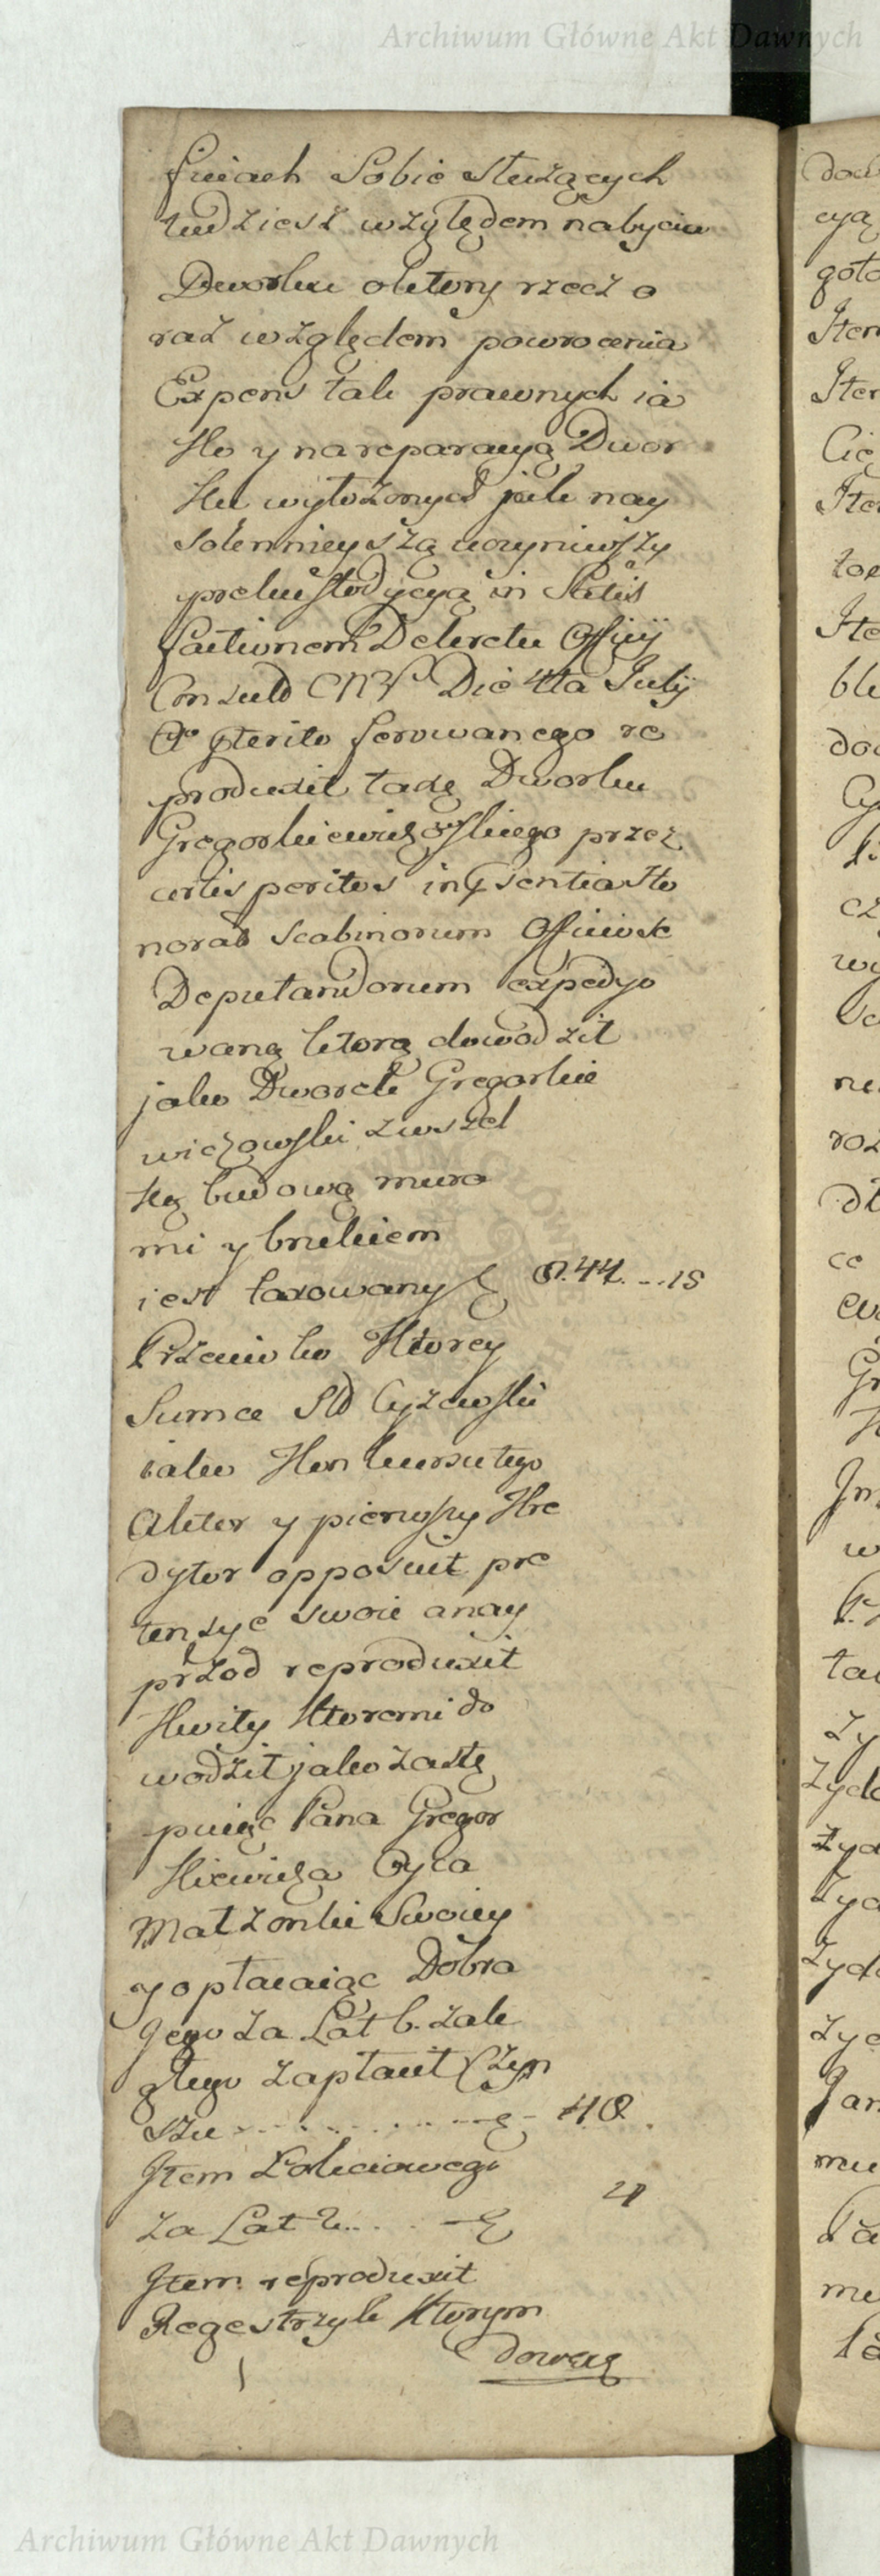 Archiwum Główne Akt Dawnych
sciach Sobie służących
tudziesz względem nabycia
Dworku o ktory rzecz o
raz względem powrocenia
Expens tak prawnych ia
ko y na reparacyą Dwor
ku wyłożonych jak nay
solennieyszą uczyniwszy
prekustodycyą in Satis
factionem Dekretu Officij
Consuld Die 4ta July
Ao pterito ferowanego re
produxit taxę Dworku
Gregorkiewiczowskiego przez
certis peritos in psentia Ho
norat Scabinorum Officiose
Deputandorum expedyo
waną ktorą dowodził
jako Dworek Gregorkie
wiczowski zwszel
ką budową mura
mi y brukiem
iest taxowany f 44...15
Przeciwko Ktorey
Sumce Sld Cyzewski
iako Konkursutego
Aktor y pierwszy Kre
dytor opposuit pre
tensye swoie a nay
przod reproduxit
Kwity Ktoremi do
wodził jako zastę
puiąc Pana Gregor
Kiewicza Oyca
Małzonki Swoiey
y opłacaiąc Dobra
Jego za Lat 6. zale
głego zapłacił Czyn
szu
Item Łokciowego
za Lat
Item reproduxit
Regestrzyk Ktorym
dowodzą
dow
cyą
goto
Item
Item
Cię
Item
Ite
dow
Cy
cz
wy
roz
Gr
w
Zy
Zyd
Zyd
Zyd
Zyd
Jan
mu
Archiwum Główne Akt Dawnych